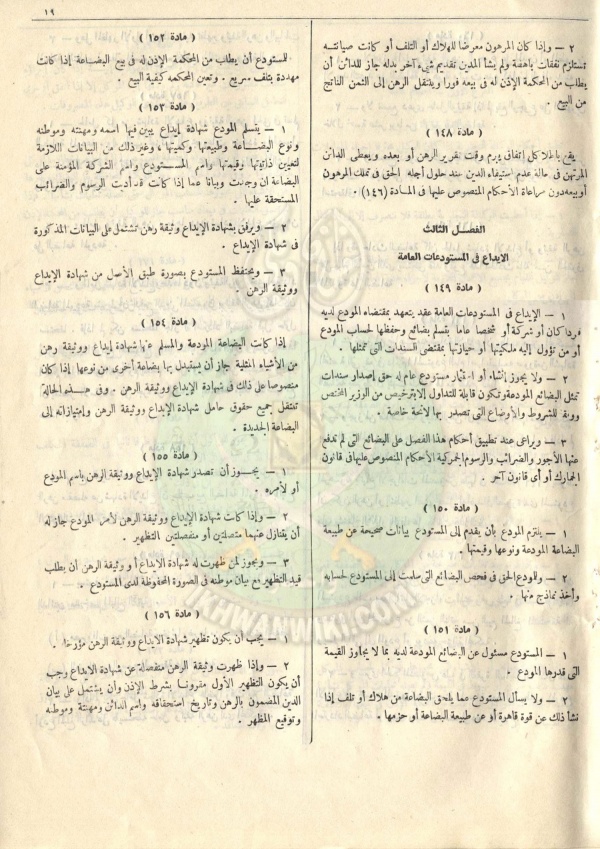 ١٩
٢ — وإذا كان المرهون معرضا للهلاك أو التلف أو كانت صيانته
تستلزم نفقات باهظة ولم يشأ المدين تقديم شيء آخر بدله جاز للدائن أن
يطلب من المحكمة الإذن له في بيعه فورا وينتقل الرهن إلى الثمن الناتج
من البيع .
( مادة ١٤٨ )
يقع باطلا كل اتفاق يبرم وقت تقرير الرهن أو بعده ويعطى الدائن
المرتهن في حالة عدم استيفاء الدين عند حلول أجله الحق في تملك المرهون
أو بيعه دون مراعاة الأحكام المنصوص عليها في المادة (١٤٦) .
الفصل الثالث
الإيداع في المستودعات العامة
( مادة ١٤٩ )
١ — الإيداع في المستودعات العامة عقد يتعهد بمقتضاه المودع لديه
فردا كان أو شركة أو شخصا عاما بتسلم بضائع وحفظها لحساب المودع
أو من تؤول إليه ملكيتها أو حيازتها بمقتضى السندات التى تمثلها .
٢ — ولا يجوز إنشاء أو استثمار مستودع عام له حق إصدار سندات
تمثل البضائع المودعة وتكون قابلة للتداول إلا بترخيص من الوزير المختص
ووفقا للشروط والأوضاع التى تصدر بها لائحة خاصة .
٣ — ويراعى عند تطبيق أحكام هذا الفصل على البضائع التى لم تدفع
عنها الأجور والضرائب والرسوم الجمركية الأحكام المنصوص عليها في قانون
الجمارك أو أى قانون آخر .
( مادة ١٥٠ )
١ — يلتزم المودع بأن يقدم إلى المستودع بيانات صحيحة عن طبيعة
البضاعة المودعة ونوعها وقيمتها .
٢ — وللمودع الحق في فحص البضائع التى سلمت إلى المستودع لحسابه
وأخذ نماذج منها .
( مادة ١٥١ )
١ — المستودع مسئول عن البضائع المودعة لديه بما لا يجاوز القيمة
التى قدرها المودع .
٢ — ولا يسأل المستودع عما يلحق البضاعة من هلاك أو تلف إذا
نشأ ذلك عن قوة قاهرة أو عن طبيعة البضاعة أو حزمها .
( مادة ١٥٢ )
للمستودع أن يطلب من المحكمة الإذن له في بيع البضاعة إذا كانت
مهددة بتلف سريع . وتعين المحكمه كيفية البيع .
( مادة ١٥٣ )
١ — يتسلم المودع شهادة إيداع يبين فيها اسمه ومهنته وموطنه
ونوع البضاعة وطبيعتها وكميتها ، وغير ذلك من البيانات اللازمة
لتعيين ذاتيتها وقيمتها واسم المستودع واسم الشركة المؤمنة على
البضاعة إن وجدت وبيانا عما إذا كانت قد أديت الرسوم والضرائب
المستحقة عليها .
٢ — ويرفق بشهادة الإيداع وثيقة رهن تشتمل على البيانات المذكورة
في شهادة الإيداع .
٣ — ويحتفظ المستودع بصورة طبق الأصل من شهادة الإيداع
ووثيقة الرهن .
( مادة ١٥٤ )
إذا كانت البضاعة المودعة والمسلم عنها شهادة إيداع ووثيقة رهن
من الأشياء المثلية جاز أن يستبدل بها بضاعة أخرى من نوعها إذا كان
منصوصا على ذلك في شهادة الإيداع ووثيقة الرهن . وفي هذه الحالة
تنتقل جميع حقوق حامل شهادة الإيداع ووثيقة الرهن وامتيازاته إلى
البضاعة الجديدة .
( مادة ١٥٥ )
١ — يجوز أن تصدر شهادة الإيداع ووثيقة الرهن باسم المودع
أو لأمره .
٢ — وإذا كانت شهادة الإيداع ووثيقة الرهن لأمر المودع جاز له
أن يتنازل عنهما متصلتين أو منفصلتين بالتظهير .
٣ — ويجوز لمن ظهرت له شهادة الإيداع أو وثيقة الرهن أن يطلب
قيد التظهير مع بيان موطنه في الصورة المحفوظة لدى المستودع .
( مادة ١٥٦ )
١ — يجب أن يكون تظهير شهادة الايداع ووثيقة الرهن مؤرخا .
٢ — وإذا ظهرت وثيقة الرهن منفصلة عن شهادة الايداع وجب
أن يكون التظهير الأول مقرونا بشرط الإذن وأن يشتمل على بيان
الدين المضمون بالرهن وتاريخ استحقاقه واسم الدائن ومهنته وموطنه
وتوقيع المظهر .
IKHWANWIKI.COM